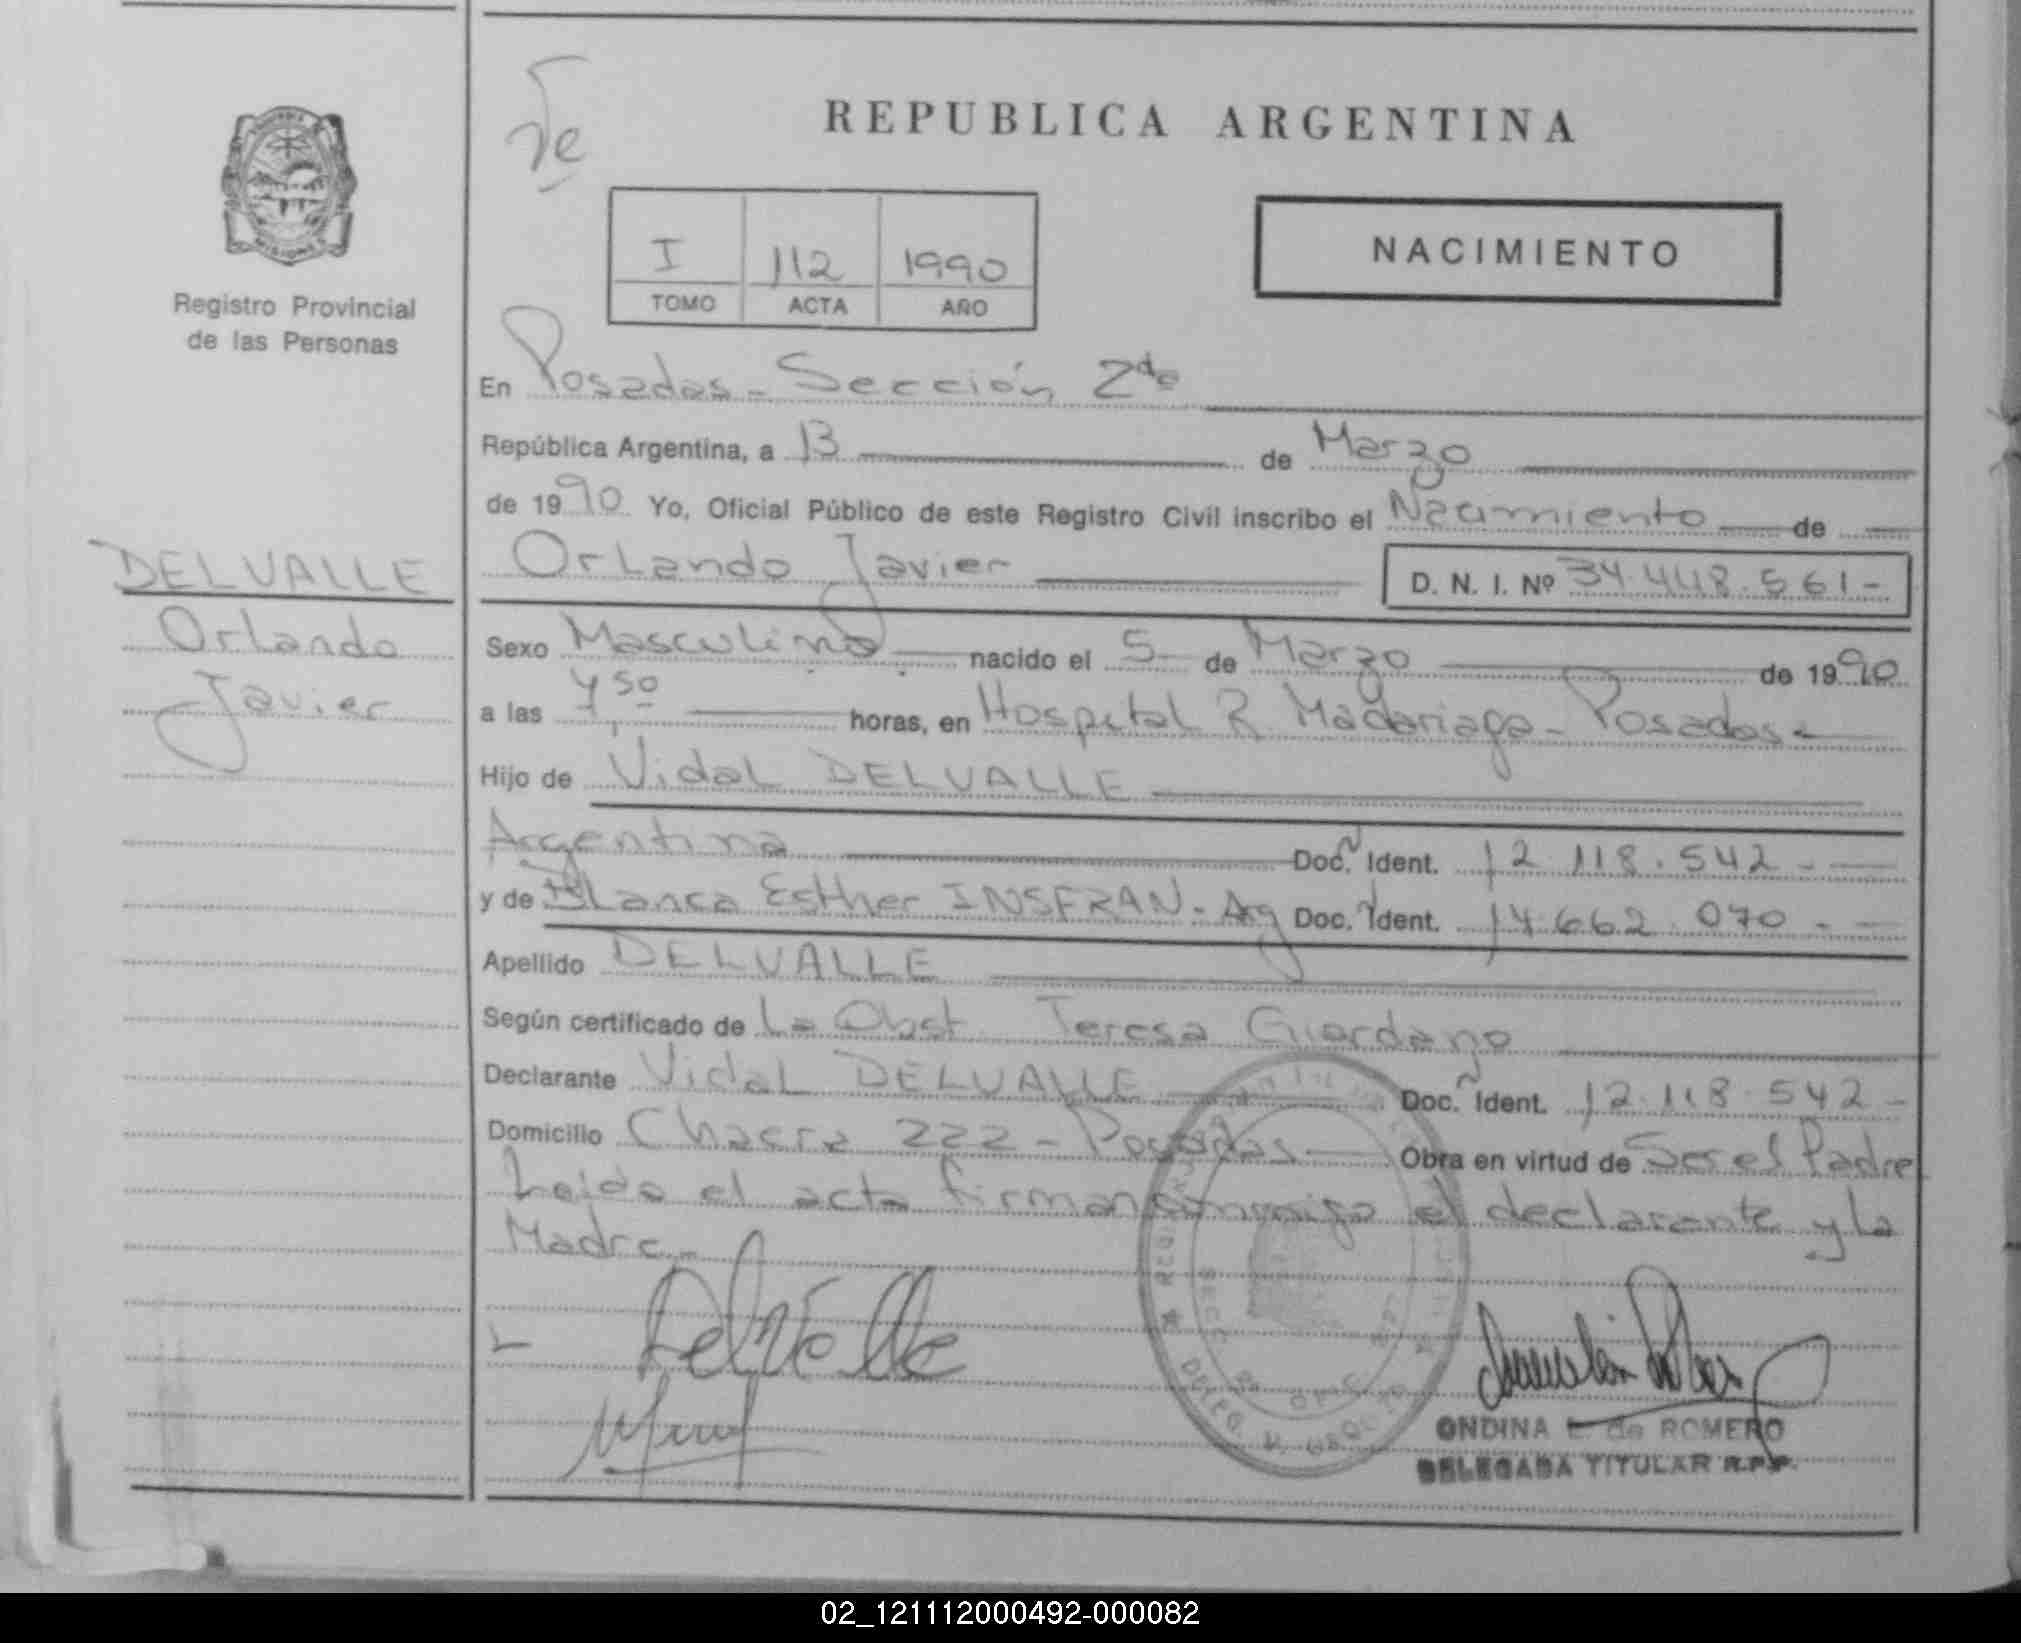 Te
REPUBLICA ARGENTINA
NACIMIENTO
I 112 1990
TOMO ACTA AÑO
MISIONES
Registro Provincial
de las Personas
En Posadas - Sección 2da
República Argentina, a 13 de Marzo
de 1990 Yo, Oficial Público de este Registro Civil inscribo el Nacimiento de
Orlando Javier D. N. I. Nº 34.448.561-
DELVALLE
Orlando
Javier
Sexo Masculino nacido el 5 de Marzo de 1990
a las 4,50 horas, en Hospital R. Madariaga - Posadas -
Hijo de Vidal DELVALLE
Argentina Doc. Ident. 12.118.542 -
y de Blanca Esther INSFRAN - Arg Doc. Ident. 14.662.070 -
Apellido DELVALLE
Según certificado de La Obst. Teresa Giordano
Declarante Vidal DELVALLE Doc. Ident. 12.118.542 -
Domicilio Chacra 222 - Posadas Obra en virtud de Ser el Padre
Leida el acta firman conmigo el declarante y la
Madre -
Delvalle
ONDINA E. de ROMERO
DELEGADA TITULAR R.P.P.
02_121112000492-000082